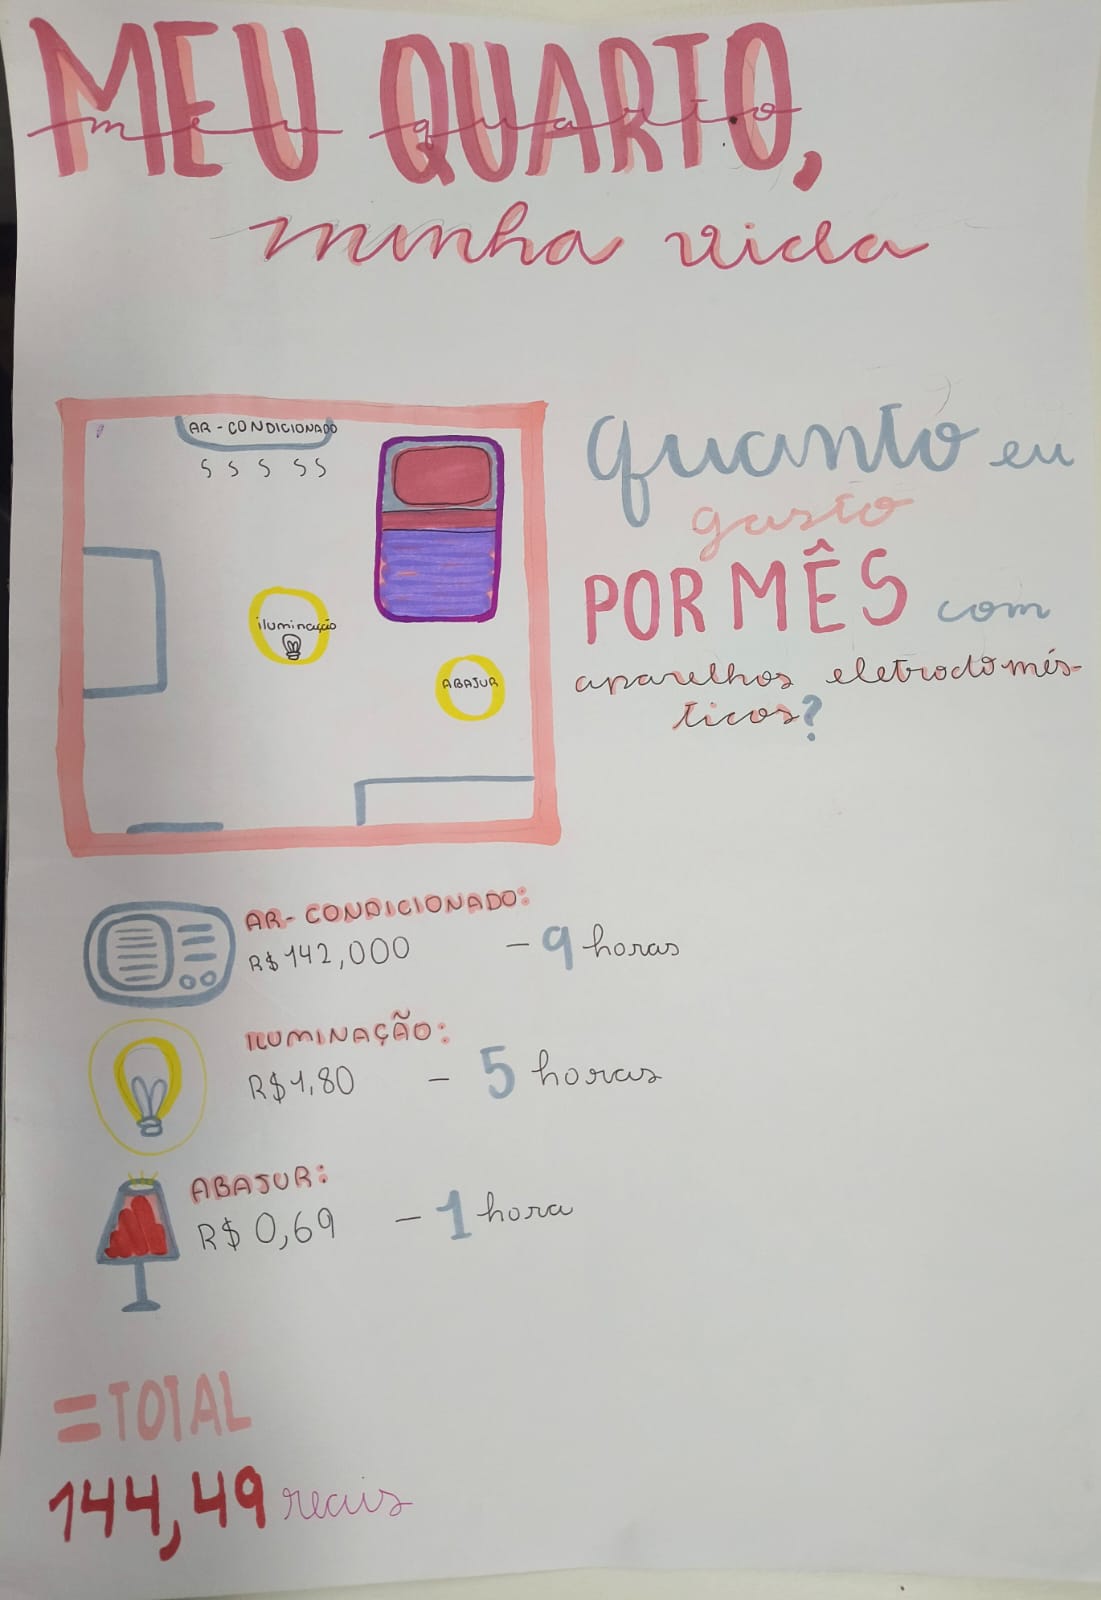 MEU QUARTO,
meu quarto
minha vida
AR-CONDICIONADO
S S S S S
iluminação
ABAJUR
quanto eu
gasto
POR MÊS com
aparelhos eletrodomés-
ticos?
AR-CONDICIONADO:
R$142,000 - 9 horas
ILUMINAÇÃO:
R$1,80 - 5 horas
ABAJUR:
R$ 0,69 - 1 hora
=TOTAL
144,49 reais